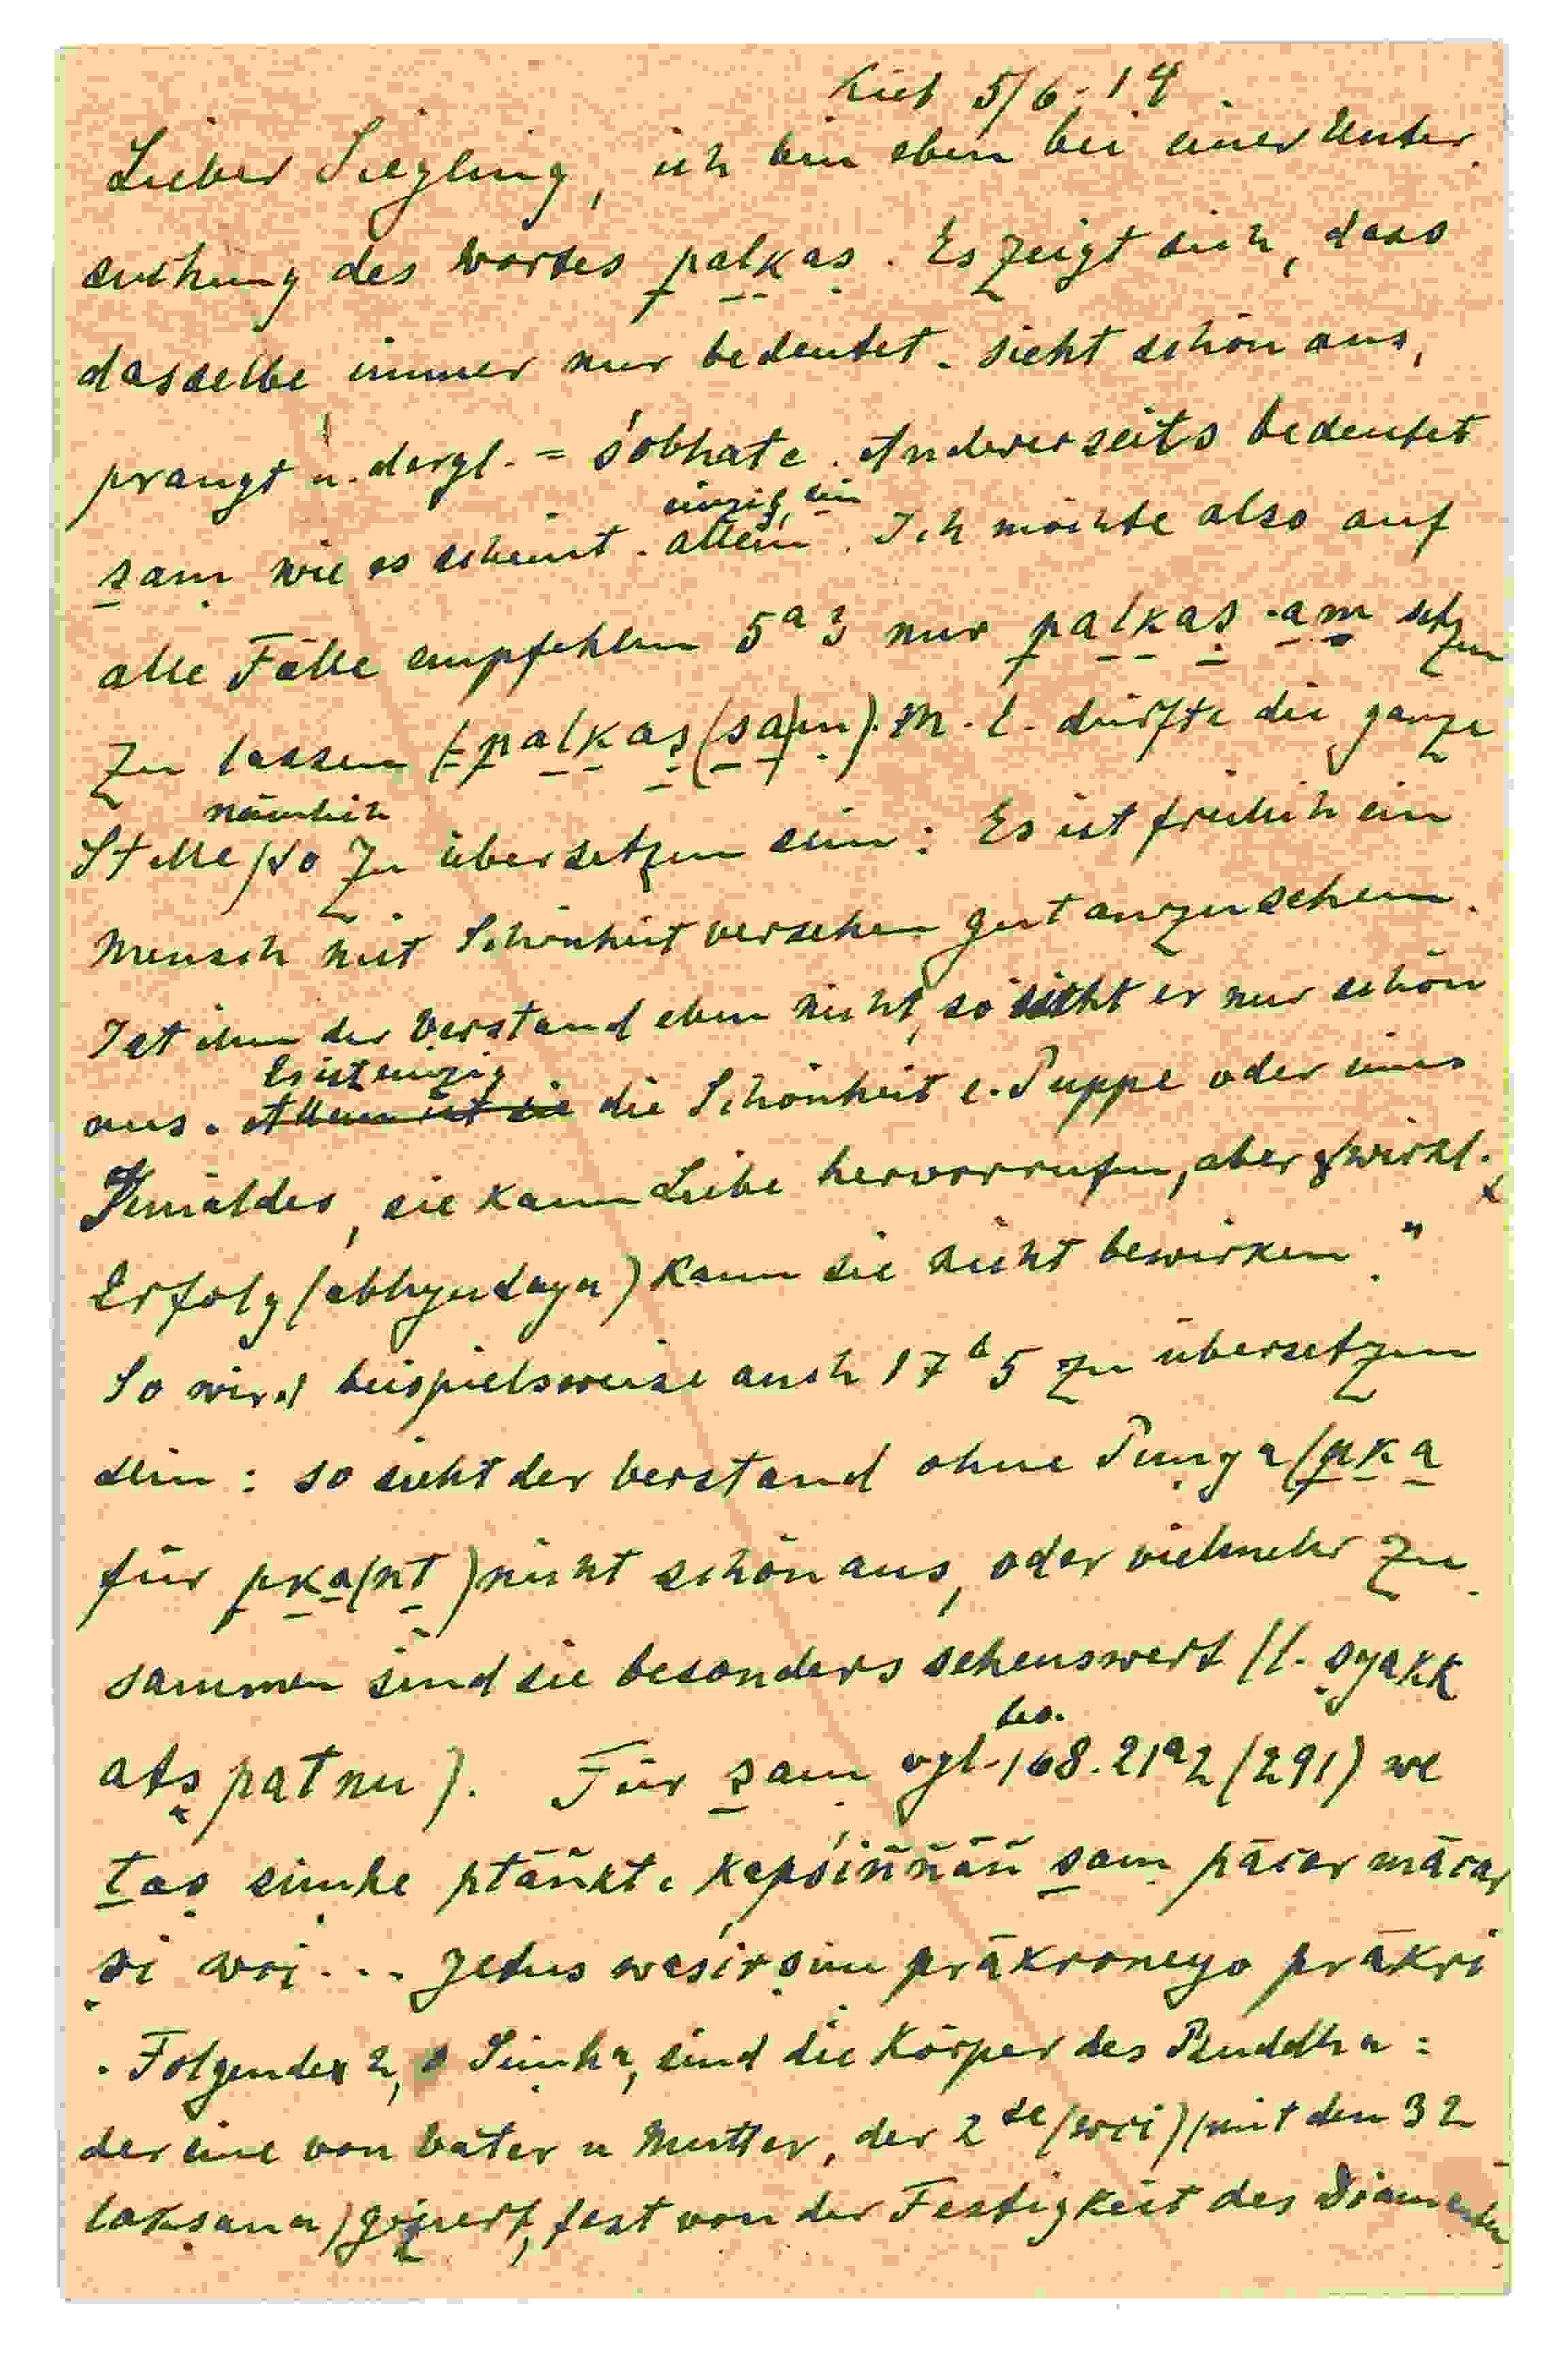 Kiel 5/6.14.
Lieber Siegling, ich bin eben bei einer Unter
suchung des Wortes palkas. Es zeigt sich, dass
dasselbe immer nur bedeutet . sieht schön aus,
prangt u. dergl. = śobhate. Andererseits bedeutet
einzig, ein
ṣaṃ wie es scheint . allein. Ich möchte also auf
alle Fälle empfehlen 5ª3 nur palkaṣ ·aṃ setzen
zu lassen (= palkaṣ (ṣa)ṃ). M. E. dürfte die ganze
nämlich
Stelle so zu übersetzen sein: Es ist freilich ein
Mensch mit Schönheit versehen gut anzusehen.
Ist ihm der Verstand eben nicht, so sieht er nur schön
Es ist einzig
aus. Allein ist sie die Schönheit e. Puppe oder eines
Gemäldes, sie kann Liebe hervorrufen, aber wirkl.
Erfolg (abhyudaya) kann sie nicht bewirken."
So wird beispielsweise auch 17ᵇ5 zu übersetzen
sein: so sieht der Verstand ohne Puṇya (pka
für pka(nt) nicht schön aus, oder vielmehr zu
sammen sind sie besonders sehenswert (l. ṣyakk
atṣ patnu). Für ṣaṃ
bes.
vgl. 168.21ª2 (291) we
taṣ siṃhe ptāñkte kapśiññāñ ṣaṃ pācar mācar
ṣi wri ... Jetus waśirṣinu prākroneyo prākri
. Folgende 2, o Siṃha, sind die Körper des Buddha:
der eine von Vater u Mutter, der 2te (wri) (mit den 32
lakṣana) geziert, fest von der Festigkeit des Diamanten